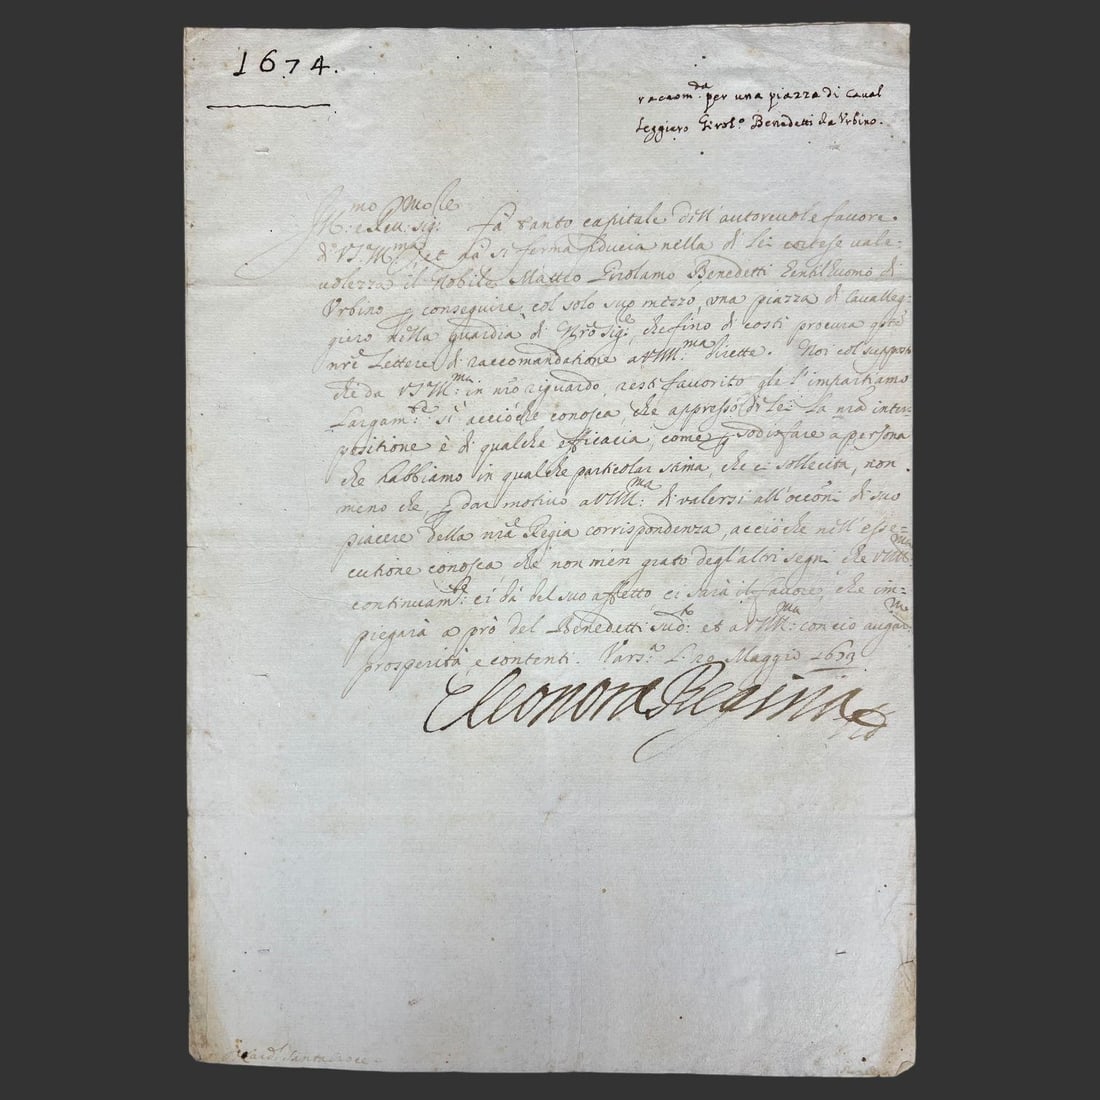 1674.
raccom.da per una piazza di Caval
leggiero Girol.o Benedetti da Urbino.
Ill.mo e Rev. Sig. Fà tanto capitale dell'autoreuole fauore
di V.S. Ill.ma, et hà si ferma fiducia nella di Lei cortese vale-
volezza il Nobile Matteo Girolamo Benedetti Gentil'uomo di
Vrbino conseguire col solo suo mezzo, una piazza di Cavalleg-
giero nella guardia di Nro Sig.e, che fino di costi procura
nre Lettere di raccomandatione a V.S.Ill.ma dirette. Noi col supposto
che da V.S.Ill.ma in nro riguardo, resti favorito gle l'impartiamo
Largam.te si acciòche conosca, che appresso di Lei la nra inter-
positione è di qualche efficacia, come p sodisfare a persona
che habbiamo in qualche particolar stima, che ci sollecita, non
meno che, p dar motivo a V.S.Ill.ma di valersi all'occõn di suo
piacere della nra Regia corrispondenza, acciòche nell'esse-
cutione conosca che non men grato degl'altri segni che V.S.Ill.ma
continuam.te ci dà del suo affetto, ci sarà il favore, che im-
piegarà a prò del Benedetti sud.to et a V.S.Ill.ma con ciò augur.mo
prosperità, e contenti. Vars.a Maggio 1673
Eleonora Regina
Card.l Santacroce